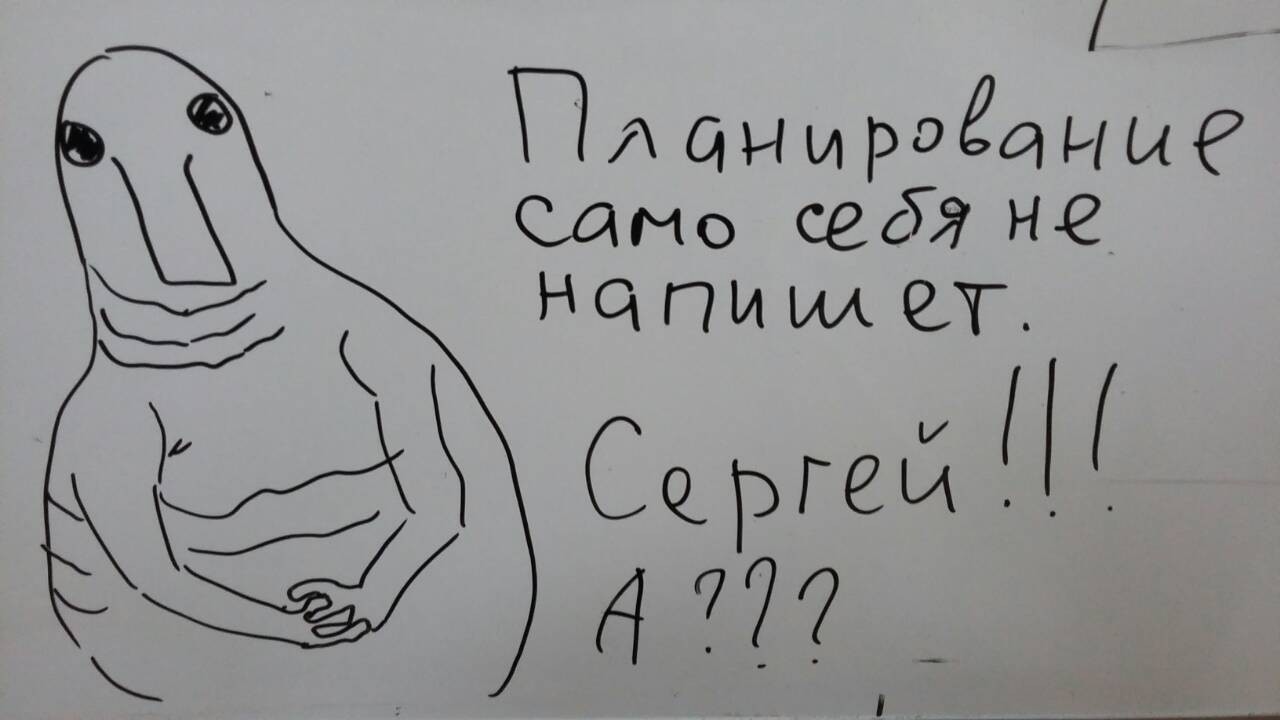 Планирование
само себя не
напишет.
Сергей!!!
А???